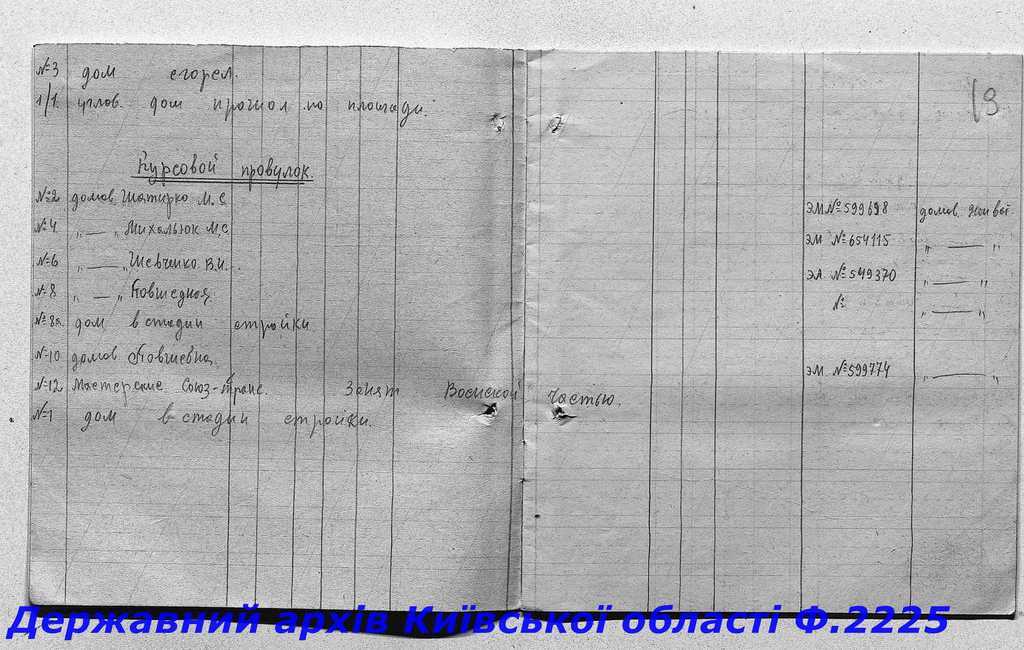 №3 дом сгорел.
1/1. углов. дом прошол по площади.
19
Курсовой провулок.
№2 домов. Шатирко М.С. ЭМ №599698 домов.
№4 „ — „ Михальюк М.С. ЭМ №654115 „ — „
№6 „ — „ Шевченко В.И. ЭА. №549370 „ — „
№8 „ — „ № „ — „
№8а дом в стадии стройки
№10 домов. ЭМ. №599774 „ — „
№12 Мастерские Союз-транс. Занят Воинской Частью.
№1 дом в стадии стройки.
Державний архів Київської області Ф.2225